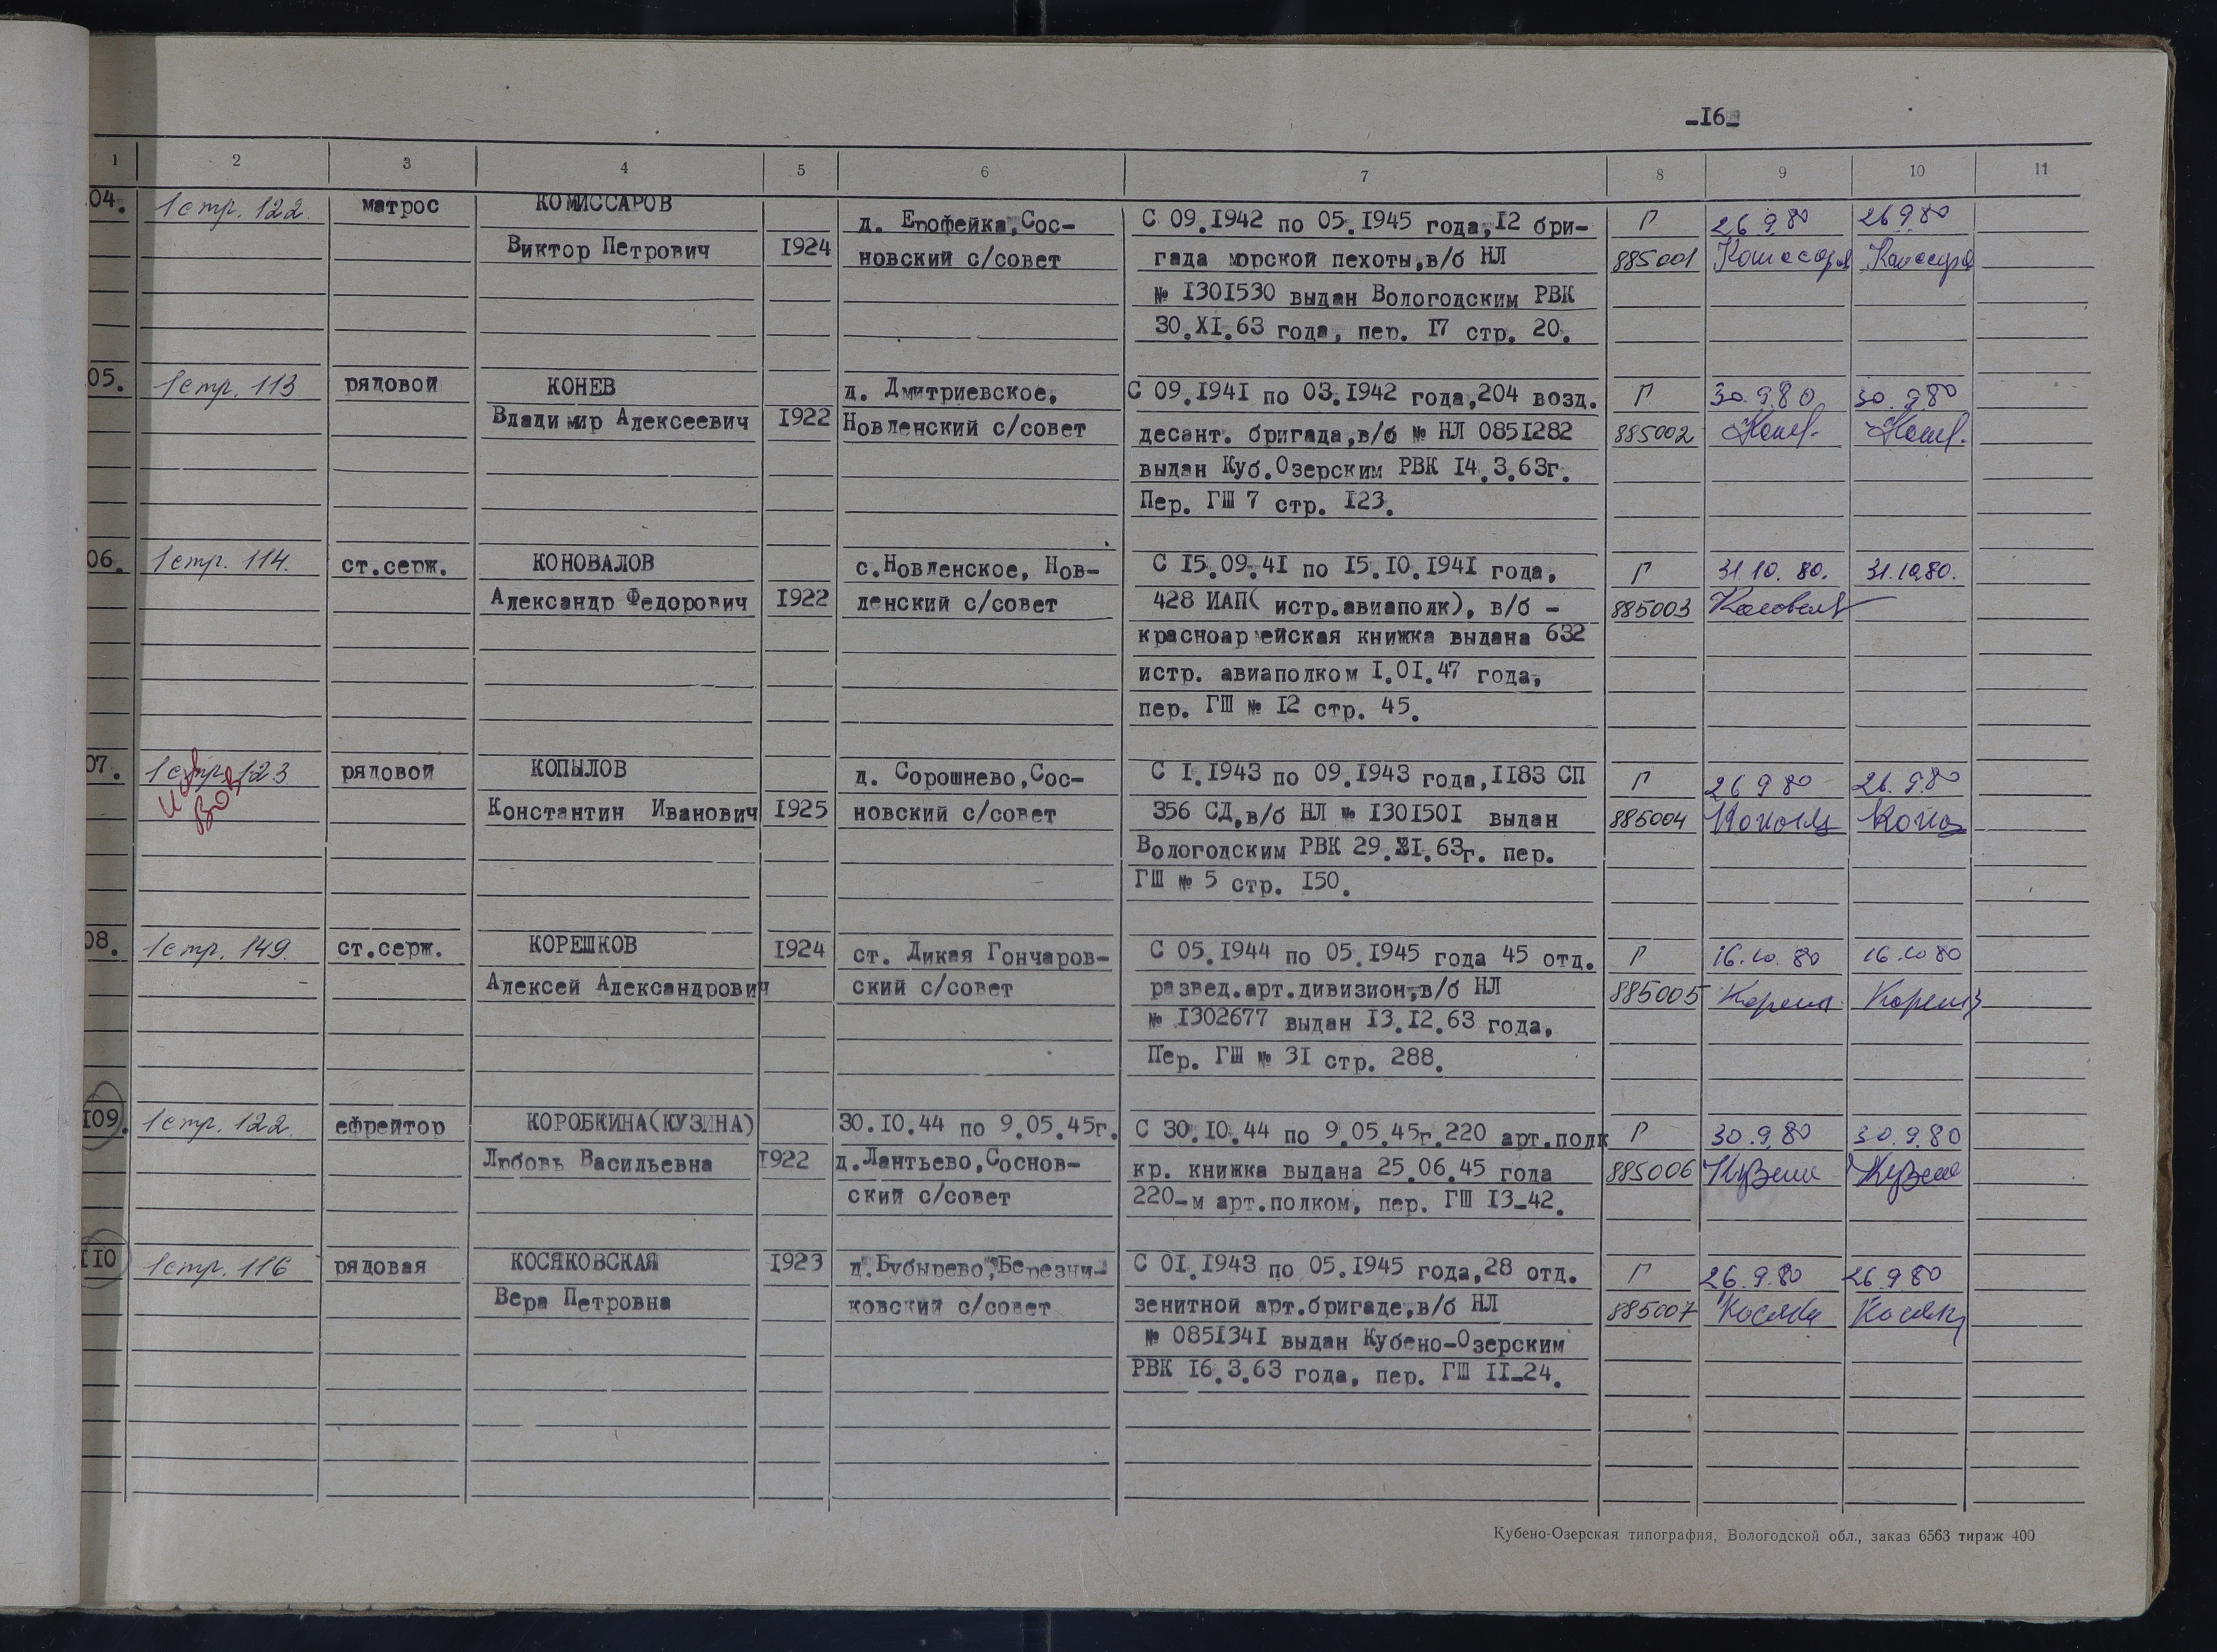 -I6-
1 2 3 4 5 6 7 8 9 10 11
04. 1 стр. 122. матрос КОМИССАРОВ
Виктор Петрович I924
д. Ерофейка, Сос-
новский с/совет
С 09.I942 по 05.I945 года, I2 бри-
гада морской пехоты, в/б НЛ
№ I30I530 выдан Вологодским РВК
30.XI.63 года, пер. I7 стр. 20.
Г
885001
26 9.80
26 9 80
05. 1 стр. 113 рядовой КОНЕВ
Владимир Алексеевич I922
д. Дмитриевское,
Новленский с/совет
С 09.I94I по 03.I942 года, 204 возд.
десант. бригада, в/б № НЛ 085I282
выдан Куб.Озерским РВК I4.3.63г.
Пер. ГШ 7 стр. I23.
Г
885002
30.9.80
30.9.80
06. 1 стр. 114. ст.серж. КОНОВАЛОВ
Александр Федорович I922
с.Новленское, Нов-
ленский с/совет
С I5.09.4I по I5.I0.I94I года,
428 ИАП( истр.авиаполк), в/б -
красноармейская книжка выдана 632
истр. авиаполком I.0I.47 года,
пер. ГШ № I2 стр. 45.
Г
885003
31 10. 80.
31.10.80.
07. 1 стр. 123 рядовой КОПЫЛОВ
Константин Иванович I925
д. Сорошнево, Сос-
новский с/совет
С I.I943 по 09.I943 года, II83 СП
356 СД, в/б НЛ № I30I50I выдан
Вологодским РВК 29.XI.63г. пер.
ГШ № 5 стр. I50.
Г
885004
26 9 80
26. 9.80
08. 1 стр. 149. ст.серж. КОРЕШКОВ I924
Алексей Александрович
ст. Дикая Гончаров-
ский с/совет
С 05.I944 по 05.I945 года 45 отд.
развед.арт.дивизион, в/б НЛ
№ I302677 выдан I3.I2.63 года,
Пер. ГШ № 3I стр. 288.
Г
885005
16.10. 80
16.10 80
I09. 1 стр. 122. ефрейтор КОРОБКИНА(КУЗИНА)
Любовь Васильевна I922
30.I0.44 по 9.05.45г.
д.Лантьево, Соснов-
ский с/совет
С 30.I0.44 по 9.05.45г.220 арт.полк
кр. книжка выдана 25.06.45 года
220-м арт.полком, пер. ГШ I3-42.
Г
885006
30.9.80
30.9.80
II0 1 стр. 116 рядовая КОСЯКОВСКАЯ I923
Вера Петровна
д.Бубырево, Березни-
ковский с/совет
С 0I.I943 по 05.I945 года, 28 отд.
зенитной арт.бригаде, в/б НЛ
№ 085I34I выдан Кубено-Озерским
РВК I6.3.63 года, пер. ГШ II-24.
Г
885007
26.9.80
26 9 80
Кубено-Озерская типография, Вологодской обл., заказ 6563 тираж 400